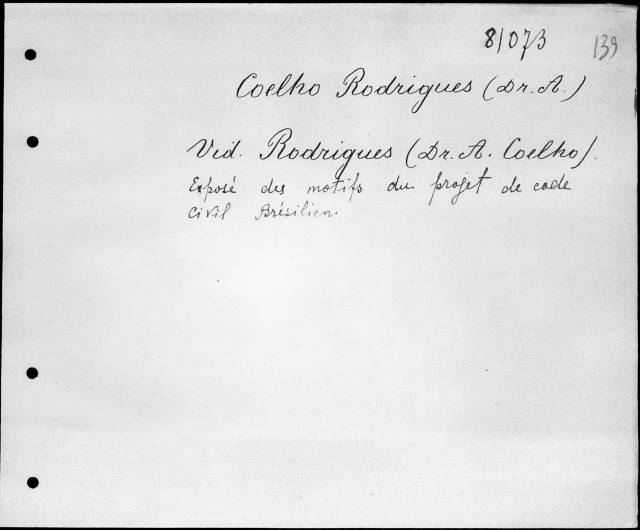 8/073 139
Coelho Rodrigues (Dr. A.)
Vid. Rodrigues (Dr. A. Coelho).
Exposé des motifs du projet de code
civil Brésilien.